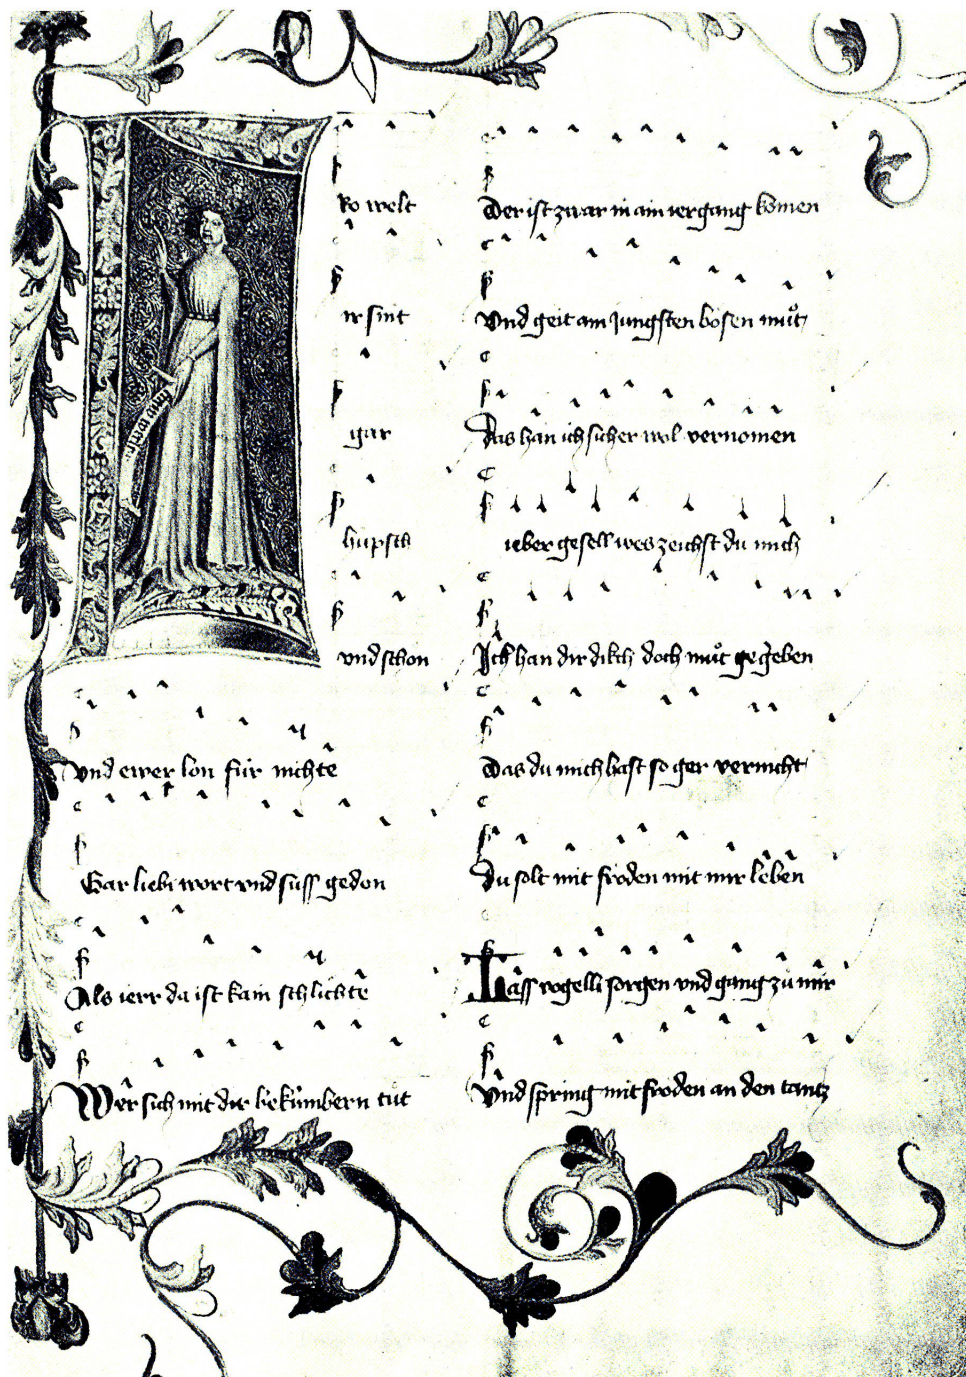 ro welt
ir sint
gar
hüpsch
vnd schon
vnd ewer lon für nichte
Gar liebi wort vnd süss gedon
Als ierr da ist kain schlichte
Wer sich mit dir bekümbern tüt
Der ist zwar in ain iergang komen
Vnd geit am jungsten bosen můt
das han ich sicher wol vernomen
ieber gesell wes zeichst du mich
Ich han dir dikch doch můt gegeben
Das du mich hast so ger vernicht
du solt mit fröden mit mir leben
Lass vogelli sorgen vnd gang zů mir
Vnd spring mit froden an den tantz